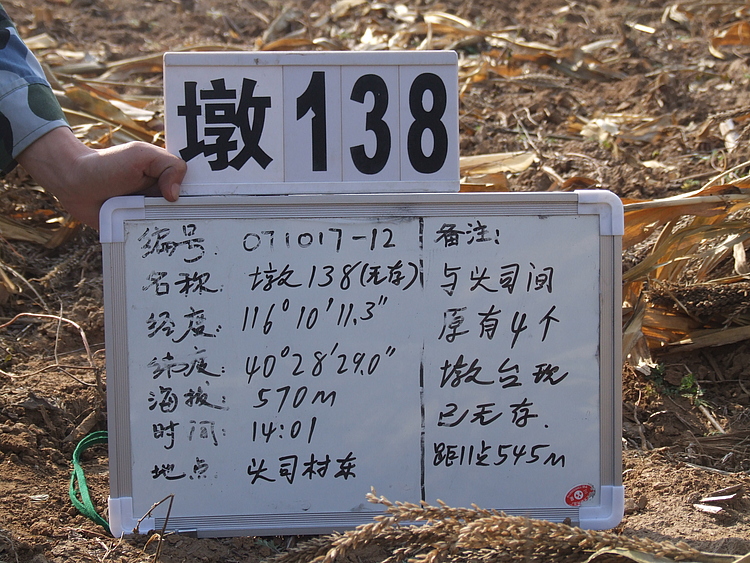 墩138
编号: 071017-12
名称: 墩138(无存)
经度: 116°10′11.3″
纬度: 40°28′29.0″
海拔: 570m
时间: 14:01
地点: 头司村东
备注:
与头司间
原有4个
墩台现
已无存.
距11点545m